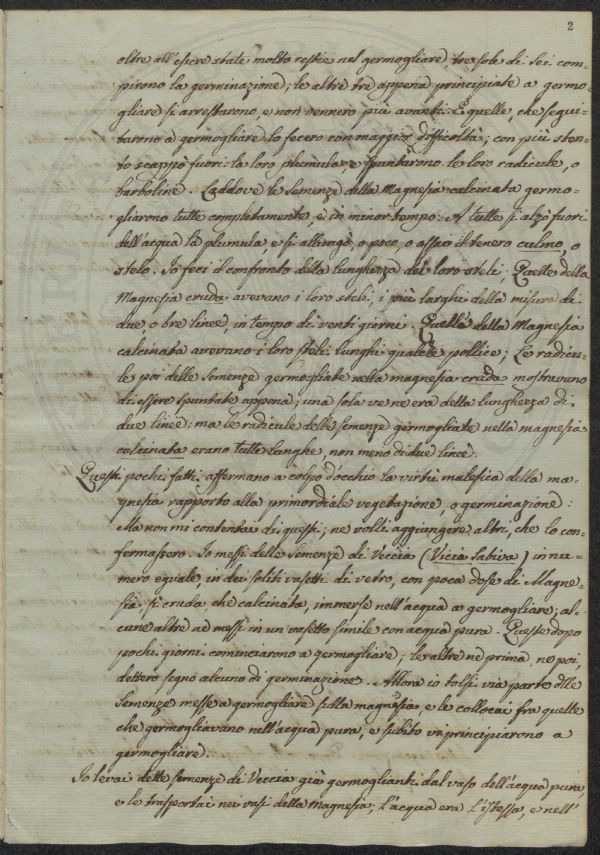 2
oltre all'essere state molto restie nel germogliare, tre sole di sei com-
pirono la germinazione; le altre tre appena principiate a germo-
gliare si arrestarono, e non vennero più avanti. E quelle, che segui-
tarono a germogliare lo fecero con maggior difficoltà; con più sten-
to scappò fuori la loro plumula, e spuntarono le loro radicule, o
barboline. Laddove le semenze della Magnesia calcinata germo-
gliarono tutte completamente, e in minor tempo: A tutte si alzò fuori
dell'acqua la plumula e si allungò, o poco, o assai il tenero culmo, o
stelo. Io feci il confronto della lunghezza dei loro steli; Quelle della
Magnesia cruda avevano i loro steli, i più larghi della misura di
due, o tre linee, in tempo di venti giorni. Quelle della Magnesia
calcinata avevano i loro steli lunghi qualche pollice; Le radicu-
le poi delle semenze germogliate nella magnesia cruda mostravano
di essere spuntate appena; una sola ve ne era della lunghezza di
due linee: ma le radicule delle semenze germogliate nella magnesia
calcinata erano tutte lunghe, non meno di due linee.
Questi pochi fatti affermano a colpo d'occhio la virtù malefica della ma-
gnesia rapporto alla primordiale vegetazione, o germinazione:
Ma non mi contentai di questi; ne volli aggiungere altri, che lo con-
fermassero. Io messi delle semenze di Veccia (Vicia Sativa) in nu-
mero eguale in dei soliti vasetti di vetro, con poca dose di Magne-
sia sì cruda, che calcinata, immerse nell'acqua a germogliare; al-
cune altre ne messi in un vasetto simile con acqua pura. Queste dopo
pochi giorni cominciarono a germogliare; le altre nè prima, ne poi,
dettero segno alcuno di germinazione. Allora io tolsi via parte delle
semenze messe a germogliare sulla magnesia, e le collocai fra quelle
che germogliavano nell'acqua pura, e subito vi principiarono a
germogliare.
Io levai delle semenze di Veccia già germoglianti dal vaso dell'acqua pura,
e le trasportai nei vasi della magnesia; l'acqua era l'istessa, e nell'